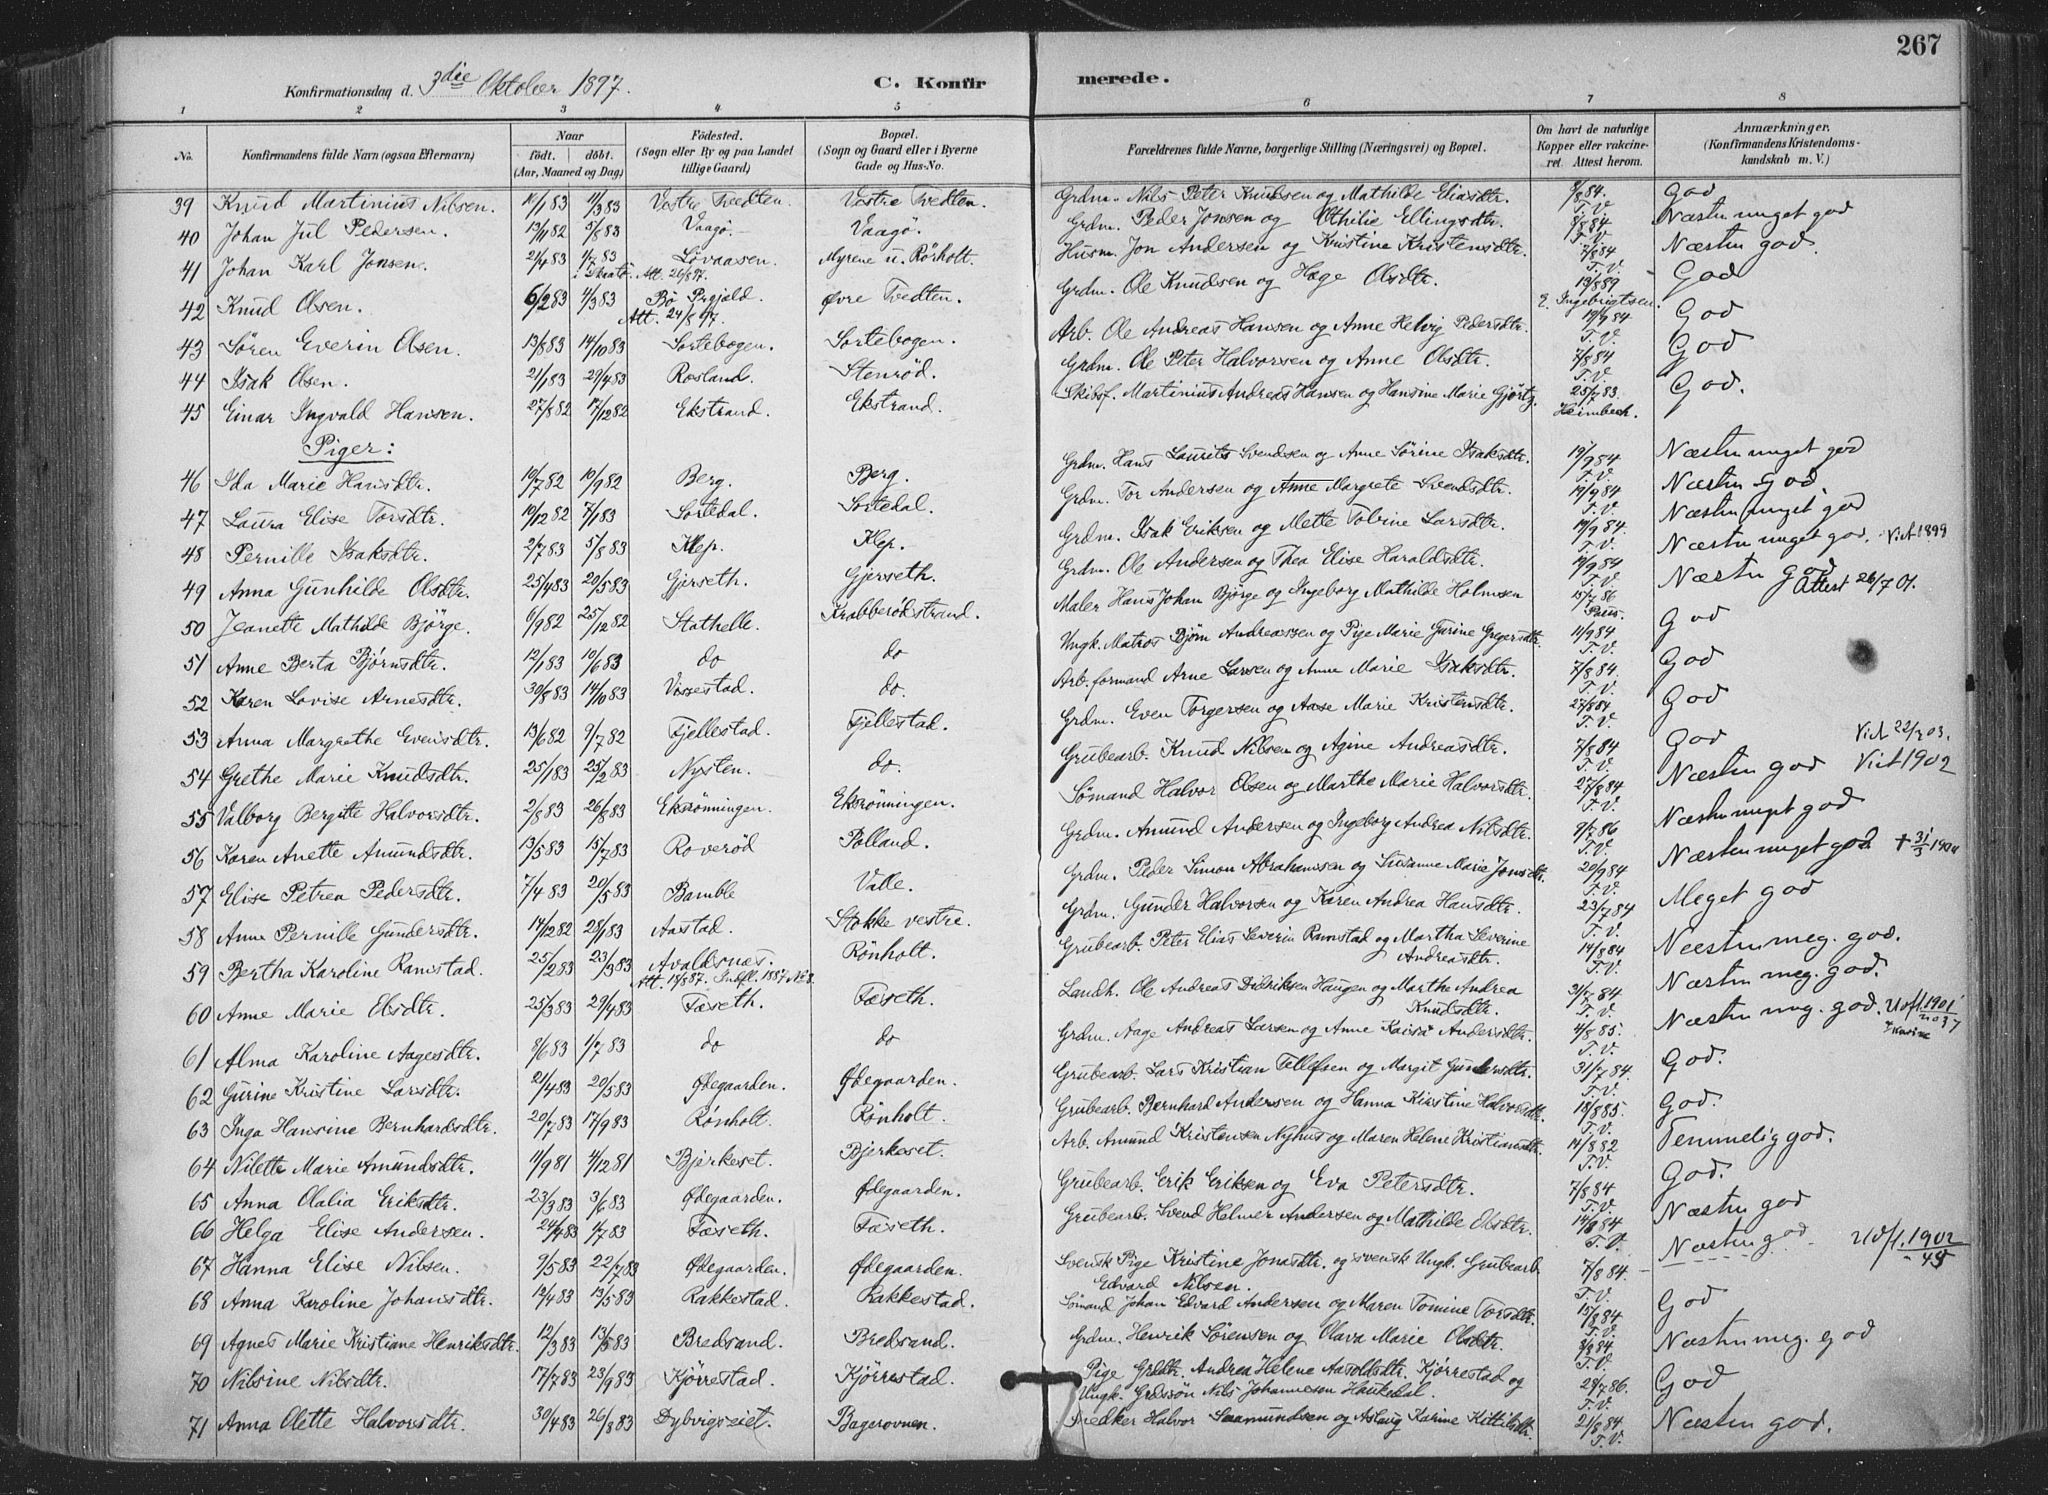 267
Konfirmationsdag d. 3die Oktober 1897.
C. Konfirmerede.
1 2 3 4 5 6 7 8
No. Konfirmandens fulde Navn (ogsaa Efternavn) Naar født. døbt. (Aar, Maaned og Dag) Födested. (Sogn eller By og paa Landet tillige Gaard.) Bopæl. (Sogn og Gaard eller i Byerne Gade og Hus-No. Forældrenes fulde Navne, borgerlige Stilling (Næringsvei) og Bopæl. Om havt de naturlige Kopper eller vakcineret. Attest herom. Anmærkninger. (Konfirmandens Kristendomskundskab m. V.)
39 Knud Martinius Nilsen. 10/1 83 11/3 83 Vestre Tvedten. Vestre Tvedten. Grdm. Nils Peter Knudsen og Mathilde Eliasdtr. 8/8 84. T. V. God
40 Johan Jul Pedersen. 13/11 82 5/8 83 Vaagø. Vaagø. Grdm. Peder Jonsen og Othilie Ellingsdtr. 7/8 84 T. V. Næsten meget god
41 Johan Karl Jonsen. 2/4 83 1/7 83 i Skaatø Løvaasen. Att. 26/8 97. Myrene u. Rörholt. Husm. Jon Andersen og Kristine Kristensdtr. 7/8 84 T. V. Næsten god.
42 Knud Olsen. 6/2 83 4/3 83 Bö Prgjeld. Att. 24/8 97. Øvre Tvedten. Grdm. Ole Knudsen og Hæge Olsdtr. 19/8 89 E. Ingebrigtsen. God
43 Sören Everin Olsen. 13/8 83 14/10 83 Sortebogen. Sortebogen. Arb. Ole Andreas Hansen og Anne Helvig Pedersdtr. 19/9 84 T. V. God
44 Isak Olsen. 21/1 83 29/4 83 Rosland. Stenrød. Grdm. Ole Peter Halvorsen og Anne Olsdtr. 7/8 84 T. V. God
45 Einar Ingvald Hansen. 27/8 82 17/12 82 Ekstrand. Ekstrand. Skibsf. Martinius Andreas Hansen og Hansine Marie Gjörtz. 25/7 83. Heimbeck. God.
Piger:
46 Ida Marie Hansdtr. 19/7 82 10/9 82 Berg. Berg. Grdm. Hans Laurits Svendsen og Anne Sörine Isaksdtr. 19/9 84 T. V. Næsten meget god
47 Laura Elise Torsdtr. 10/12 82 7/1 83 Sörtedal Sortedal. Grdm. Tor Andersen og Anne Margrete Svendsdtr. 19/9 84 T. V. Næsten God.
48 Pernille Isaksdtr. 2/7 83 5/8 83 Klep. Klep. Grdm. Isak Eriksen og Mette Tobine Larsdtr. 19/9 84. T. V. Næsten meget god
49 Anna Gunhilde Olsdtr. 25/4 83 20/5 83 Gjerseth. Gjerseth. Grdm. Ole Andersen og Thea Elise Haraldsdtr. 19/9 84 T. V. Næsten meget god. Vict 1899
50 Jeanette Mathilde Bjørge. 6/9 82 25/12 82 Stathelle. Krabberødstrand. Maler Hans Johan Bjørge og Ingeborg Mathilde Holmsen 15/7 86 Næsten god Attest 26/7 01.
51 Anne Berta Bjørnsdtr. 12/1 83 10/6 83 do do Ungk. Matros Bjørn Andreassen og Pige Marie Gurine Gregersdtr. 11/9 84. T. V. God
52 Karen Lovise Arnesdtr. 30/8 83 14/10 83 Vissestad. do. Arb. formand Arne Larsen og Anne Marie Isaksdtr. 7/8 84. T. V. God
53 Anna Margrethe Evensdtr. 13/6 82 9/7 82 Fjellestad. Fjellestad. Grdm. Even Torgersen og Aase Marie Kristensdtr. 27/8 84 T. V. God
54 Grethe Marie Knudsdtr. 25/1 83 25/2 83 Nysten. do. Grubearb. Knud Nilsen og Agine Andreasdtr. 7/8 84 T. V. God Vict 22/2 03.
55 Valborg Bergitte Halvorsdtr. 2/8 83 26/8 83 Ekrönningen. Ekrönningen. Sömand Halvor Olsen og Marthe Marie Halvorsdtr. 27/8 84 T. V. Næsten god Vict 1902
56 Karen Anette Amundsdtr. 13/5 83 15/7 83 Roverød Polland. Grdm. Amund Andersen og Ingeborg Andrea Nilsdtr. 9/7 86 T. V. Næsten meget god
57 Elise Petrea Pedersdtr. 7/4 83 20/5 83 Bamble Valle. Grdm. Peder Simon Abrahamsen og Susanne Marie Jonsdtr. 20/9 84 T. V. Næsten meget god + 31/3 1900
58 Anne Pernille Gundersdtr. 14/12 82 28/1 83 Aastad. Stokke vestre. Grdm. Gunder Halvorsen og Karen Andrea Hansdtr. 23/7 84 T. V. Meget god
59 Bertha Karoline Ramstad. 25/2 83 23/3 83 Avaldsnæs. Att. 18/9 87. Indfl. 1887 No 8. Rönholt. Grubearb. Peter Elias Severin Ramstad og Martha Severine Andreasdtr. 14/8 84 T. V. Næsten meg. god.
60 Anne Marie Olsdtr. 25/3 83 29/4 83 Fæseth. Fæseth. Landh. Ole Andreas Didriksen Haugen og Marthe Andrea Knudsdtr. 31/7 84 T. V. Næsten meg. god.
61 Alma Karoline Aagesdtr. 8/6 83 1/7 83 do do Grdm. Aage Andreas Larsen og Anne Kaisa Andersdtr. 4/8 85. T. V. Næsten meg. god. Udfl. 1901 no 37
62 Gurine Kristine Larsdtr. 21/4 83 20/5 83 Ødegaarden. Ødegaarden. Grubearb. Lars Kristian Tellefsen og Margit Gundersdtr. 31/7 84. T. V. God.
63 Inga Hansine Bernhardsdtr. 20/7 83 17/9 83 Rönholt. Rönholt. Grubearb. Bernhard Andersen og Hanna Kirstine Halvorsdtr. 18/8 85 T. V. God.
64 Nilette Marie Amundsdtr. 11/9 81 4/12 81 Bjerkeset. Bjerkeset. Arb. Amund Kristensen Nyhus og Maren Helene Kristiansdtr. 11/8 82 T. V. Temmelig god.
65 Anna Olalia Eriksdtr. 23/3 83 3/6 83 Ødegaarden. Ødegaarden. Grubearb. Erik Eriksen og Eva Petersdtr. 7/8 84 T. V. God.
66 Helga Elise Andersen. 24/4 83 1/7 83 Fæseth. Fæseth. Grubearb. Svend Helmer Andersen og Mathilde Olsdtr. 14/8 84 T. V. Næsten god
67 Hanna Elise Nilsen. 9/5 83 22/7 83 Ødegaarden. Ødegaarden. Svensk Pige Kristine Jonasdtr. og svensk Ungk. Grubearb. Edvard Nilsen. 7/8 84. T. V. Næsten god Udfl. 1902 45
68 Anna Karoline Johansdtr. 12/4 83 13/5 83 Rakkestad. Rakkestad. Sömand Johan Edvard Andersen og Maren Tomine Torsdtr. 15/8 84 T. V. God
69 Agnes Marie Kristiane Henriksdtr. 12/3 83 13/5 83 Bredsand. Bredsand. Grdm. Henrik Sörensen og Olava Marie Olsdtr. 2/8 84 T. V. Næsten meg. god
70 Nilsine Nilsdtr. 17/7 83 23/9 83 Kjörrestad. Kjörrestad. Pige Grddtr. Andrea Helene Aasoldsdtr. Kjörrestad og Ungk. Grdssön Nils Johannesen Haukedal. 29/7 86. T. V. God
71 Anna Olette Halvorsdtr. 30/4 83 26/8 83 Dybvigseiet. Bagerovnen. Snedker Halvor Saamundsen og Aslaug Karine Kittilsdtr. 21/8 84 T. V. Næsten god.